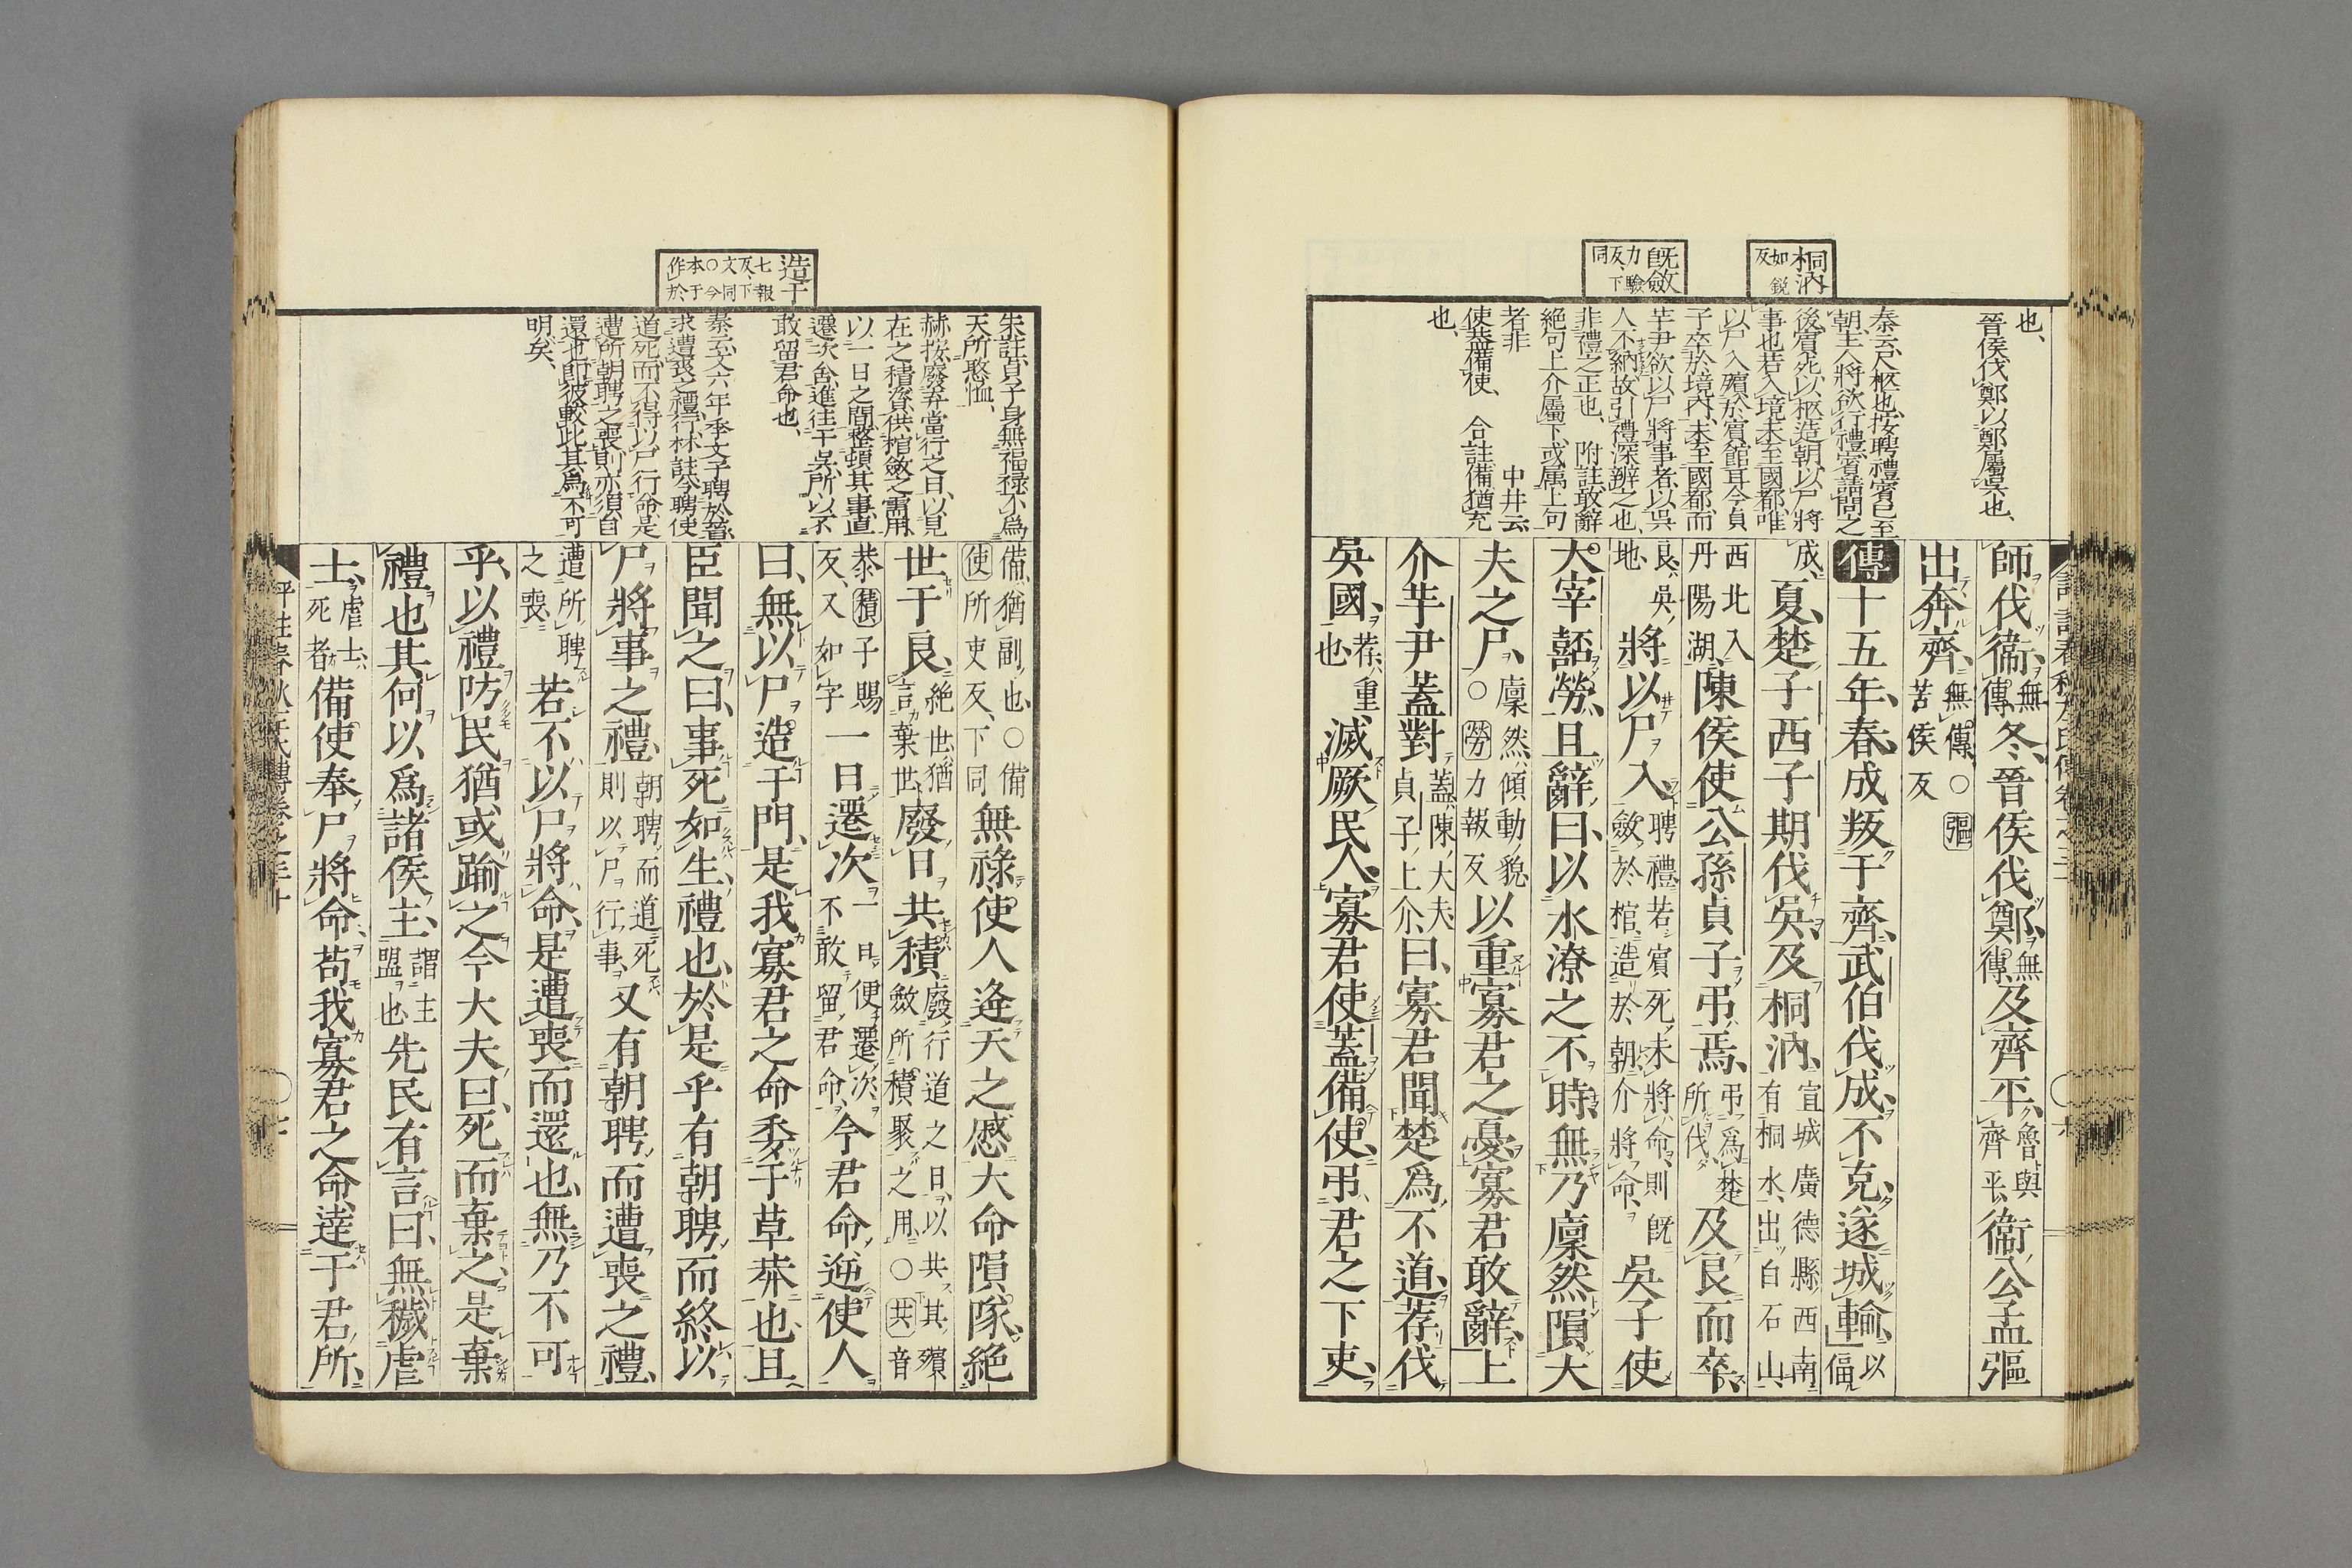 桐汭如銳反
既斂力驗反、下同
也、
晉侯伐鄭、以鄭屬吳也、
秦云、尸、柩也、按聘禮、賓已至
朝、主人將欲行禮、賓請間之
後、賓死、以柩造朝、以尸將
事也、若入境未至國都、唯
以尸入殯於賓館耳、今貞
子卒於境內、未至國都、而
芋尹欲以尸將事者、以吳
人不納、故引禮深辨之也、
非禮之正也、附註、敢辭
絕句、上介屬下、或屬上句
者非　中井云
使蓋備使、合註、備猶充
也、
師伐衞、無傳、冬、晉侯伐鄭、無傳、及齊平、魯與齊平、衞公孟彄
出奔齊、無傳、○彄苦侯反
傳十五年、春、成叛于齊、武伯伐成、不克、遂城輸、以偪
成、夏、楚子西子期伐吳、及桐汭、宣城廣德縣、西南有桐水、出白石山、
西北入丹陽湖、陳侯使公孫貞子弔焉、弔爲楚所伐、及良而卒、
良、吳地、將以尸入、聘禮、若賓死、未將命、則既斂於棺、造於朝、介將命、吳子使
大宰嚭勞、且辭曰、以水潦之不時、無乃廩然隕大
夫之尸、廩然、傾動貌、○勞力報反以重寡君之憂、寡君敢辭、上
介芋尹蓋對、蓋、陳大夫、貞子上介、曰、寡君聞楚爲不道、荐伐
吳國、荐、重也、滅厥民人、寡君使蓋備使、弔君之下吏、
造于七報反、下文同○今本于作於
朱註、貞子身無福祿、不爲
天所憖恤、
赫按、廢弃當行之日、以見
在之積資、供棺斂之需用、
以一日之間、整頓其事、直
遷次舍、進往于吳、所以不
敢留君命也、
秦云、文六年、季文子聘於晉、
求遭喪之禮行、林註、今聘使
道死、而不得以尸行命、是
遭所朝聘之喪、則亦須自
還也、即彼較此、其爲不可
明矣、
備、猶副也、○備使所吏反、下同無祿、使人逢天之慼、大命隕隊、絕
世于良、絕世、猶言棄世、廢日共積、廢行道之日、以共其殯斂所積聚之用、○共音
恭積子賜反、又如字一日遷次、一日便遷次、不敢留君命、今君命逆使人
曰、無以尸造于門、是我寡君之命委于草莽也、且
臣聞之曰、事死如生、禮也、於是乎有朝聘而終、以
尸將事之禮、朝聘而道死、則以尸行事、又有朝聘而遭喪之禮、
遭所聘之喪、若不以尸將命、是遭喪而還也、無乃不可
乎、以禮防民、猶或踰之、今大夫曰、死而棄之、是棄
禮也、其何以爲諸侯主、謂主盟也、先民有言曰、無穢虐
士、虐士、死者、備使奉尸將命、苟我寡君之命達于君所、